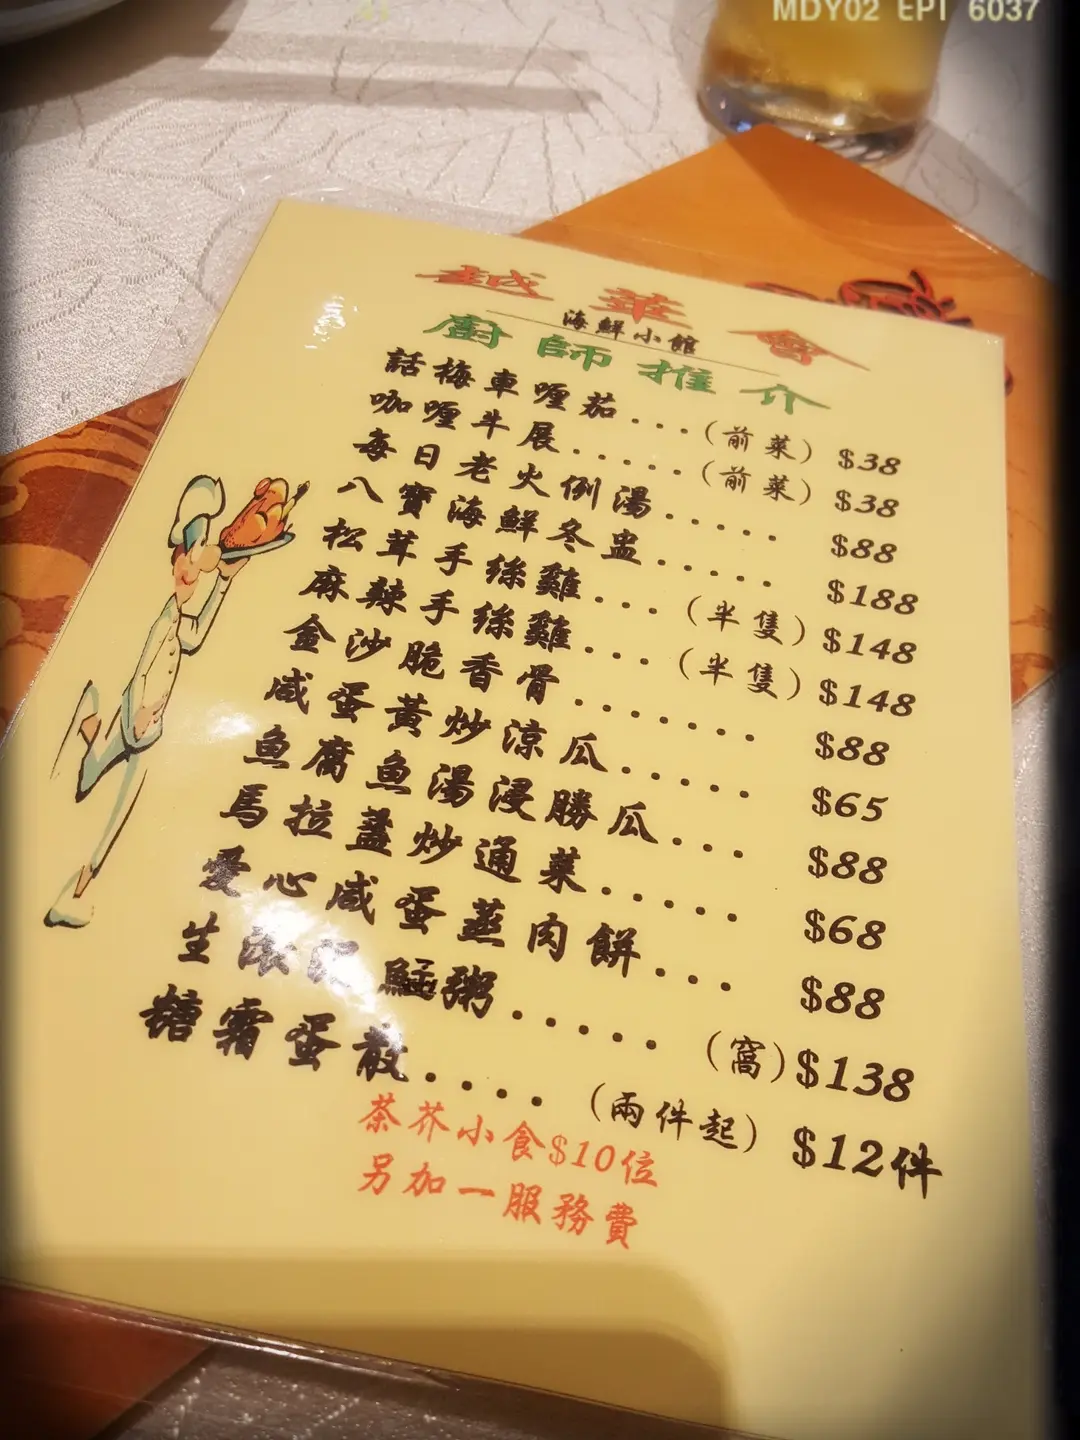 MDY02 EPI 6037
越華會
海鮮小館
廚師推介
話梅車喱茄...(前菜) $38
咖喱牛展......(前菜) $38
每日老火例湯..... $88
八寶海鮮冬盅..... $188
松茸手絲雞...(半隻) $148
麻辣手絲雞...(半隻) $148
金沙脆香骨....... $88
咸蛋黃炒涼瓜..... $65
魚腐魚湯浸勝瓜... $88
馬拉盞炒通菜..... $68
愛心咸蛋蒸肉餅... $88
生滾 鯭粥..... (窩)$138
糖霜蛋散.... (兩件起) $12件
茶芥小食$10位
另加一服務費